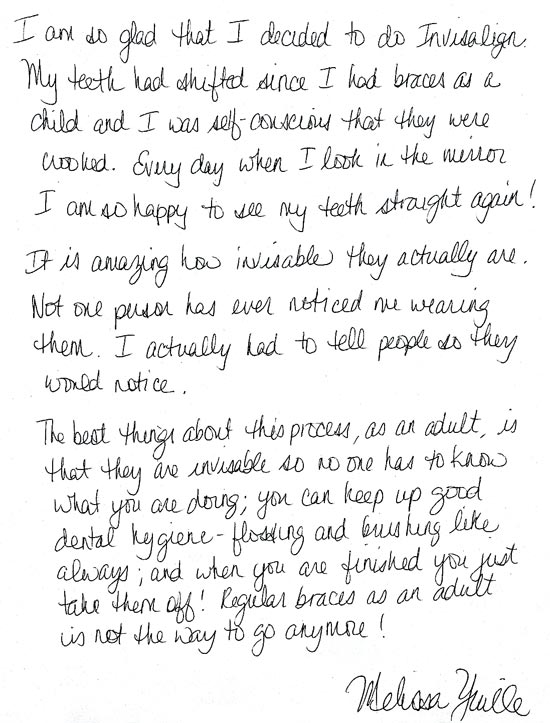 I am so glad that I decided to do Invisalign.
My teeth had shifted since I had braces as a
child and I was self-conscious that they were
crooked. Every day when I look in the mirror
I am so happy to see my teeth straight again!
It is amazing how invisable they actually are.
Not one person has ever noticed me wearing
them. I actually had to tell people so they
would notice.
The best things about this process, as an adult, is
that they are invisable so no one has to know
what you are doing; you can keep up good
dental hygiene - flossing and brushing like
always; and when you are finished you just
take them off! Regular braces as an adult
is not the way to go anymore!
Melissa